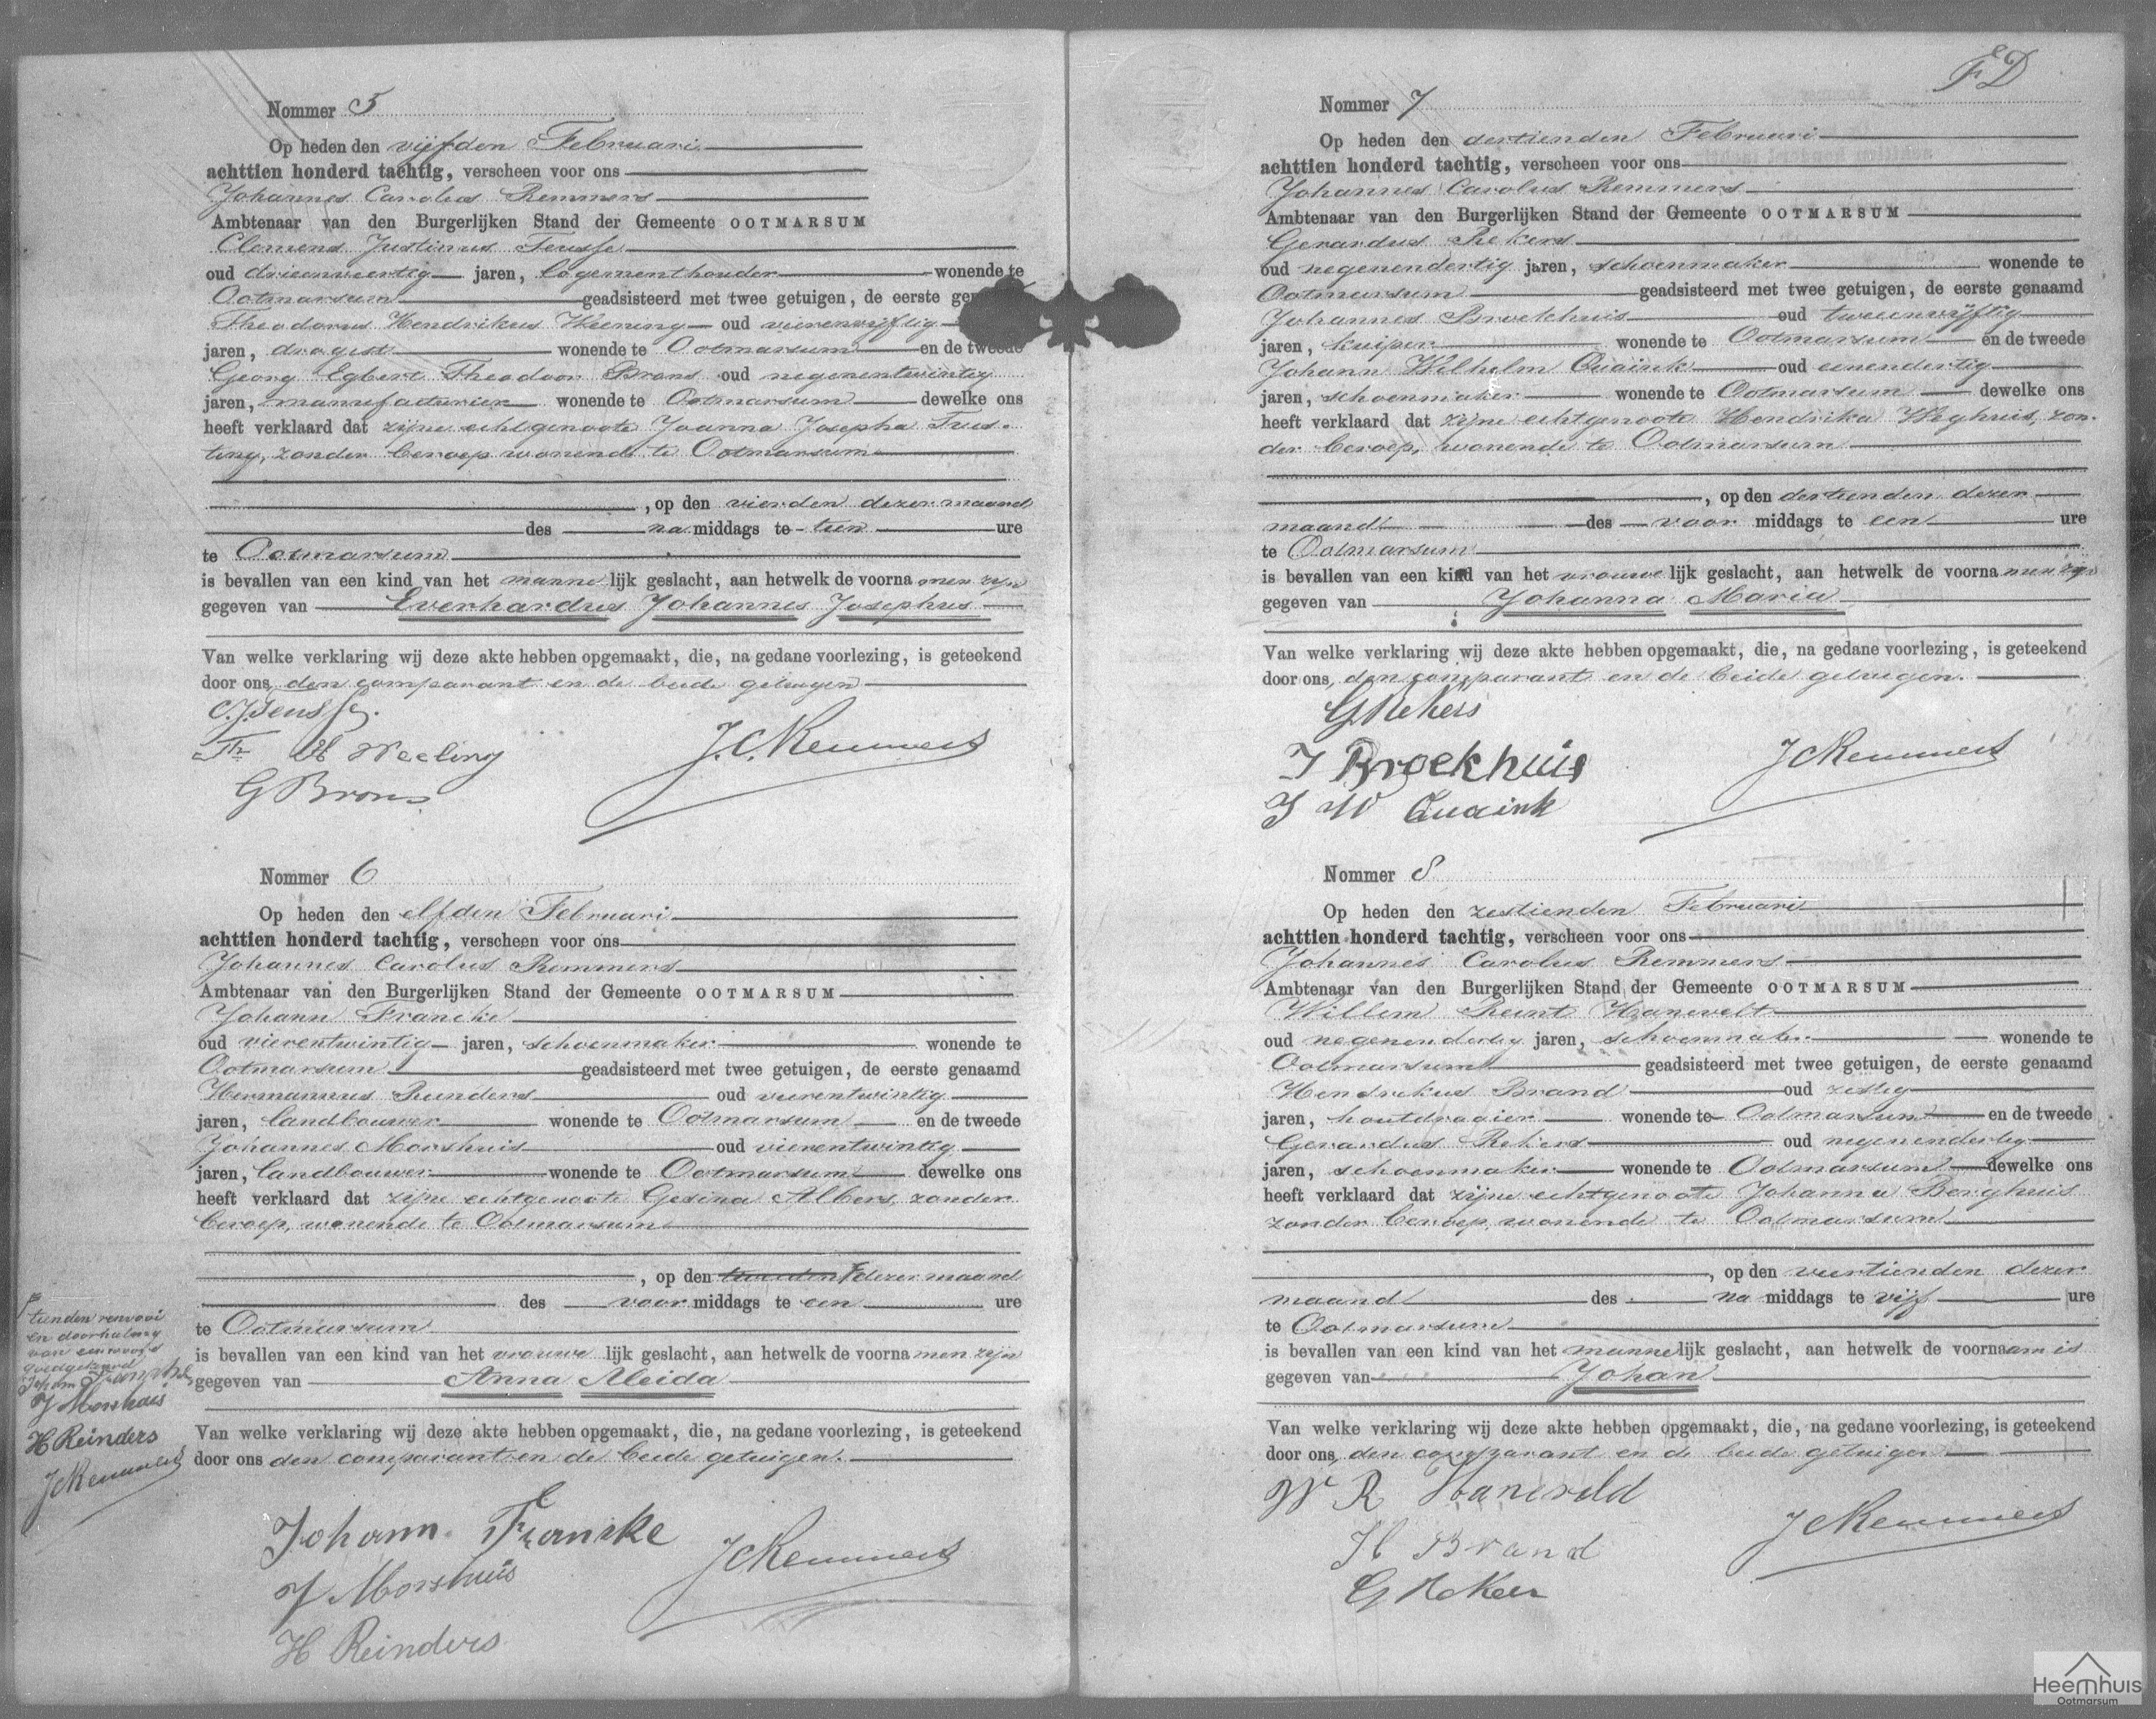 Nommer 5
Op heden den vijfden Februari
achttien honderd tachtig, verscheen voor ons
Johannes Carolus Remmers
Ambtenaar van den Burgerlijken Stand der Gemeente OOTMARSUM
Clemens Justinus Teusse
oud drieenveertig jaren, logementhouder wonende te
Ootmarsum geadsisteerd met twee getuigen, de eerste gen
Theodorus Hendrikus Weening oud vierenvijftig
jaren, drogist wonende te Ootmarsum en de tweede
Georg Egbert Theodoor Brons oud negenentwintig
jaren, manufacturier wonende te Ootmarsum dewelke ons
heeft verklaard dat zijne echtgenoote Joanna Josepha
zonder beroep wonende te Ootmarsum
, op den vierden dezer maand
des na middags te tien ure
te Ootmarsum
is bevallen van een kind van het mannelijk geslacht, aan hetwelk de voornamen zijn
gegeven van Everhardus Johannes Josephus
Van welke verklaring wij deze akte hebben opgemaakt, die, na gedane voorlezing, is geteekend
door ons, den comparant en de beide getuigen
C.J. Teusse.
Th H Weeling
G Brons
J.C. Remmers
Nommer 6
Op heden den elfden Februari
achttien honderd tachtig, verscheen voor ons
Johannes Carolus Remmers
Ambtenaar van den Burgerlijken Stand der Gemeente OOTMARSUM
Johann Francke
oud vierentwintig jaren, schoenmaker wonende te
Ootmarsum geadsisteerd met twee getuigen, de eerste genaamd
Hermannus Reinders oud vierentwintig
jaren, landbouwer wonende te Ootmarsum en de tweede
Johannes Morshuis oud vierentwintig
jaren, landbouwer wonende te Ootmarsum dewelke ons
heeft verklaard dat zijne echtgenoote Gesina Albers, zonder
beroep, wonende te Ootmarsum
, op den tweeden dezer maand
des voor middags te een ure
te Ootmarsum
is bevallen van een kind van het vrouwelijk geslacht, aan hetwelk de voornamen zijn
gegeven van Anna Aleida
Van welke verklaring wij deze akte hebben opgemaakt, die, na gedane voorlezing, is geteekend
door ons den comparant en de beide getuigen.
tienden renvooi
en doorhaling
van een woord
goedgekeurd
Johann Francke
J Morshuis
H Reinders
JCRemmers
Johann Francke
J Morshuis
H Reinders
JCRemmers
FD
Nommer 7
Op heden den dertienden Februari
achttien honderd tachtig, verscheen voor ons
Johannes Carolus Remmers
Ambtenaar van den Burgerlijken Stand der Gemeente OOTMARSUM
Gerardus Rekers
oud negenendertig jaren, schoenmaker wonende te
Ootmarsum geadsisteerd met twee getuigen, de eerste genaamd
Johannes Broekhuis oud tweeenvijftig
jaren, kuiper wonende te Ootmarsum en de tweede
Johann Wilhelm Quaink oud eenendertig
jaren, schoenmaker wonende te Ootmarsum dewelke ons
heeft verklaard dat zijne echtgenoote Hendrika Weghuis, zon-
der beroep, wonende te Ootmarsum
, op den dertienden dezer
maand des voor middags te een ure
te Ootmarsum
is bevallen van een kind van het vrouwelijk geslacht, aan hetwelk de voornamen zijn
gegeven van Johanna Maria
Van welke verklaring wij deze akte hebben opgemaakt, die, na gedane voorlezing, is geteekend
door ons, den comparant en de beide getuigen.
GRekers
J Broekhuis
J W Quaink
JCRemmers
Nommer 8
Op heden den zestienden Februari
achttien honderd tachtig, verscheen voor ons
Johannes Carolus Remmers
Ambtenaar van den Burgerlijken Stand der Gemeente OOTMARSUM
Willem Reint Hanevelt
oud negenendertig jaren, schoenmaker wonende te
Ootmarsum geadsisteerd met twee getuigen, de eerste genaamd
Hendrikus Brand oud zestig
jaren, houtdragier wonende te Ootmarsum en de tweede
Gerardus Rekers oud negenendertig
jaren, schoenmaker wonende te Ootmarsum dewelke ons
heeft verklaard dat zijne echtgenoote Johanna Berghuis
zonder beroep, wonende te Ootmarsum
, op den veertienden dezer
maand des na middags te vijf ure
te Ootmarsum
is bevallen van een kind van het mannelijk geslacht, aan hetwelk de voornaam is
gegeven van Johan
Van welke verklaring wij deze akte hebben opgemaakt, die, na gedane voorlezing, is geteekend
door ons, den comparant en de beide getuigen
W R Haneveld
H Brand
G Reker
JCRemmers
Heemhuis
Ootmarsum